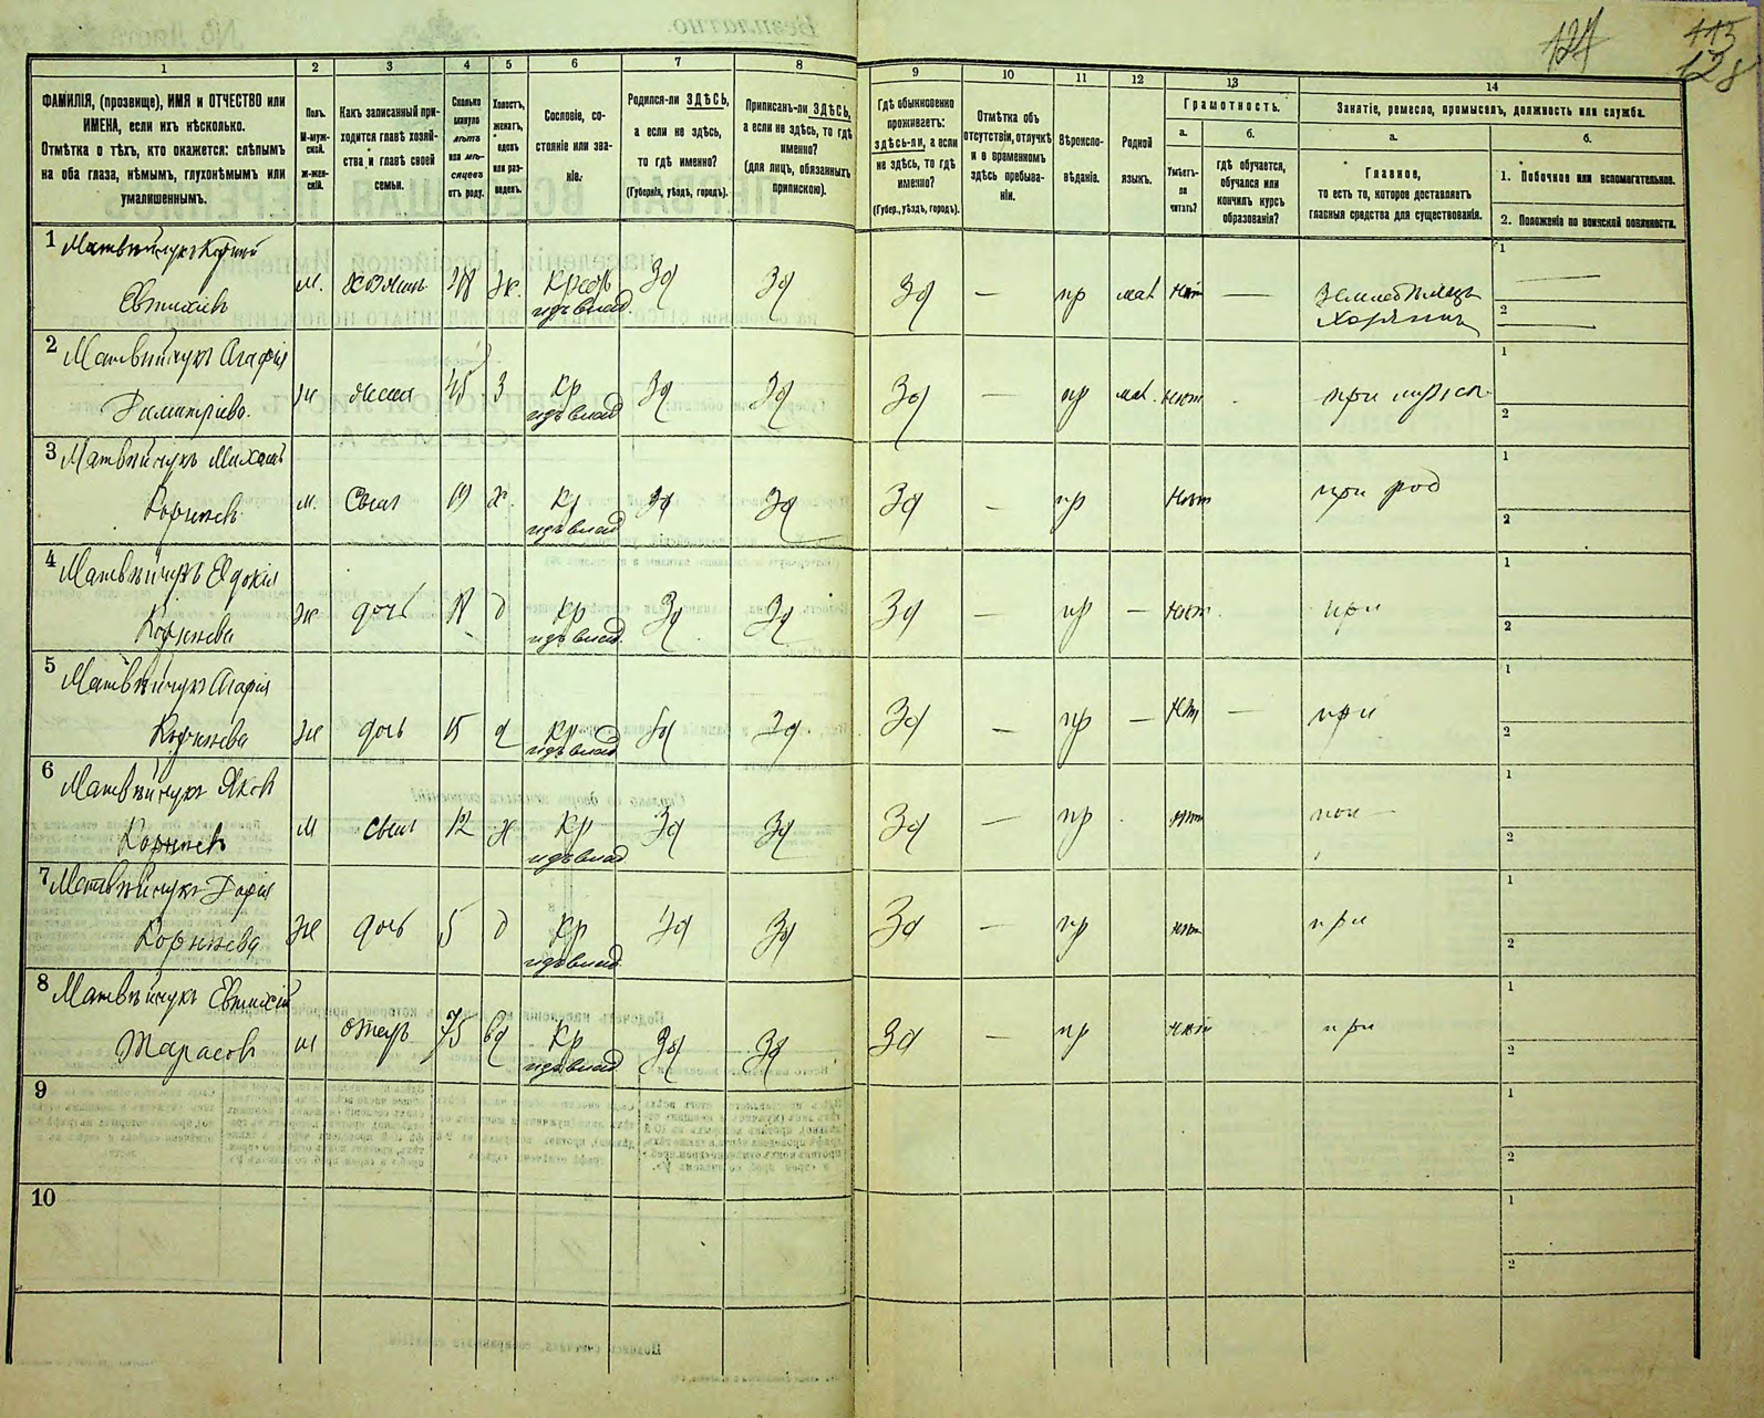 124
115
128
1 2 3 4 5 6 7 8 9 10 11 12 13 14
ФАМИЛІЯ, (прозвище), ИМЯ и ОТЧЕСТВО или
ИМЕНА, если ихъ нѣсколько.
Отмѣтка о тѣхъ, кто окажется: слѣпымъ
на оба глаза, нѣмымъ, глухонѣмымъ или
умалишеннымъ.
Полъ.
М-муж-
ской.
Ж-жен-
скій.
Какъ записанный при-
ходится главѣ хозяй-
ства и главѣ своей
семьи.
Сколько
минуло
лѣтъ
или мѣ-
сяцевъ
отъ роду.
Холостъ,
женатъ,
вдовъ
или раз-
веденъ.
Сословіе, со-
стояніе или зва-
ніе.
Родился-ли ЗДѢСЬ,
а если не здѣсь,
то гдѣ именно?
(Губернія, уѣздъ, городъ).
Приписанъ-ли ЗДѢСЬ,
а если не здѣсь, то гдѣ
именно?
(для лицъ, обязанныхъ
припискою).
Гдѣ обыкновенно
проживаетъ:
здѣсь-ли, а если
не здѣсь, то гдѣ
именно?
(Губер., уѣздъ, городъ).
Отмѣтка объ
отсутствіи, отлучкѣ
и о временномъ
здѣсь пребыва-
ніи.
Вѣроиспо-
вѣданіе.
Родной
языкъ.
Грамотность.
а.
Умѣетъ-
ли
читать?
б.
гдѣ обучается,
обучался или
кончилъ курсъ
образованія?
Занятіе, ремесло, промыселъ, должность или служба.
а.
Главное,
то есть то, которое доставляетъ
главныя средства для существованія.
б.
1. Побочное или вспомогательное.
2. Положеніе по воинской повинности.
1 Матвѣйчукъ Корній
Евтихіевъ м. хозяинъ 48 ж. Крест Зд Зд Зд — пр мал нѣт — Земледѣлецъ 1
идъ влад. Хозяинъ 2
2 Матвѣйчукъ Агафія
Димитріева. ж жена 45 З Кр Зд Зд Зд — пр мал. нѣт при мужѣ 1
идъ влад 2
3 Матвѣйчукъ Михаилъ
Корніевъ м. Сынъ 19 х. Кр Зд Зд Зд — пр Нѣт при род 1
идъ влад 2
4 Матвѣйчукъ Евдокія
Корніева ж дочь д Кр Зд Зд Зд — пр — Нѣт при 1
идъ влад. 2
5 Матвѣйчукъ
Корніева ж дочь 15 д Кр Зд Зд Зд — пр — Нѣт — при 1
идъ влад 2
6 Матвѣйчукъ Яков
Корніевъ м сынъ 12 х Кр Зд Зд Зд — пр нѣт при — 1
идъ влад 2
7 Матвѣйчукъ Дарія
Корніева ж дочь 5 д Кр Зд Зд Зд — пр нѣт при 1
идъ влад 2
8 Матвѣйчукъ Евтихій
Тарасовъ м отецъ 75 вд Кр Зд Зд Зд — пр нѣт при 1
идъ влад 2
9 1
2
10 1
2